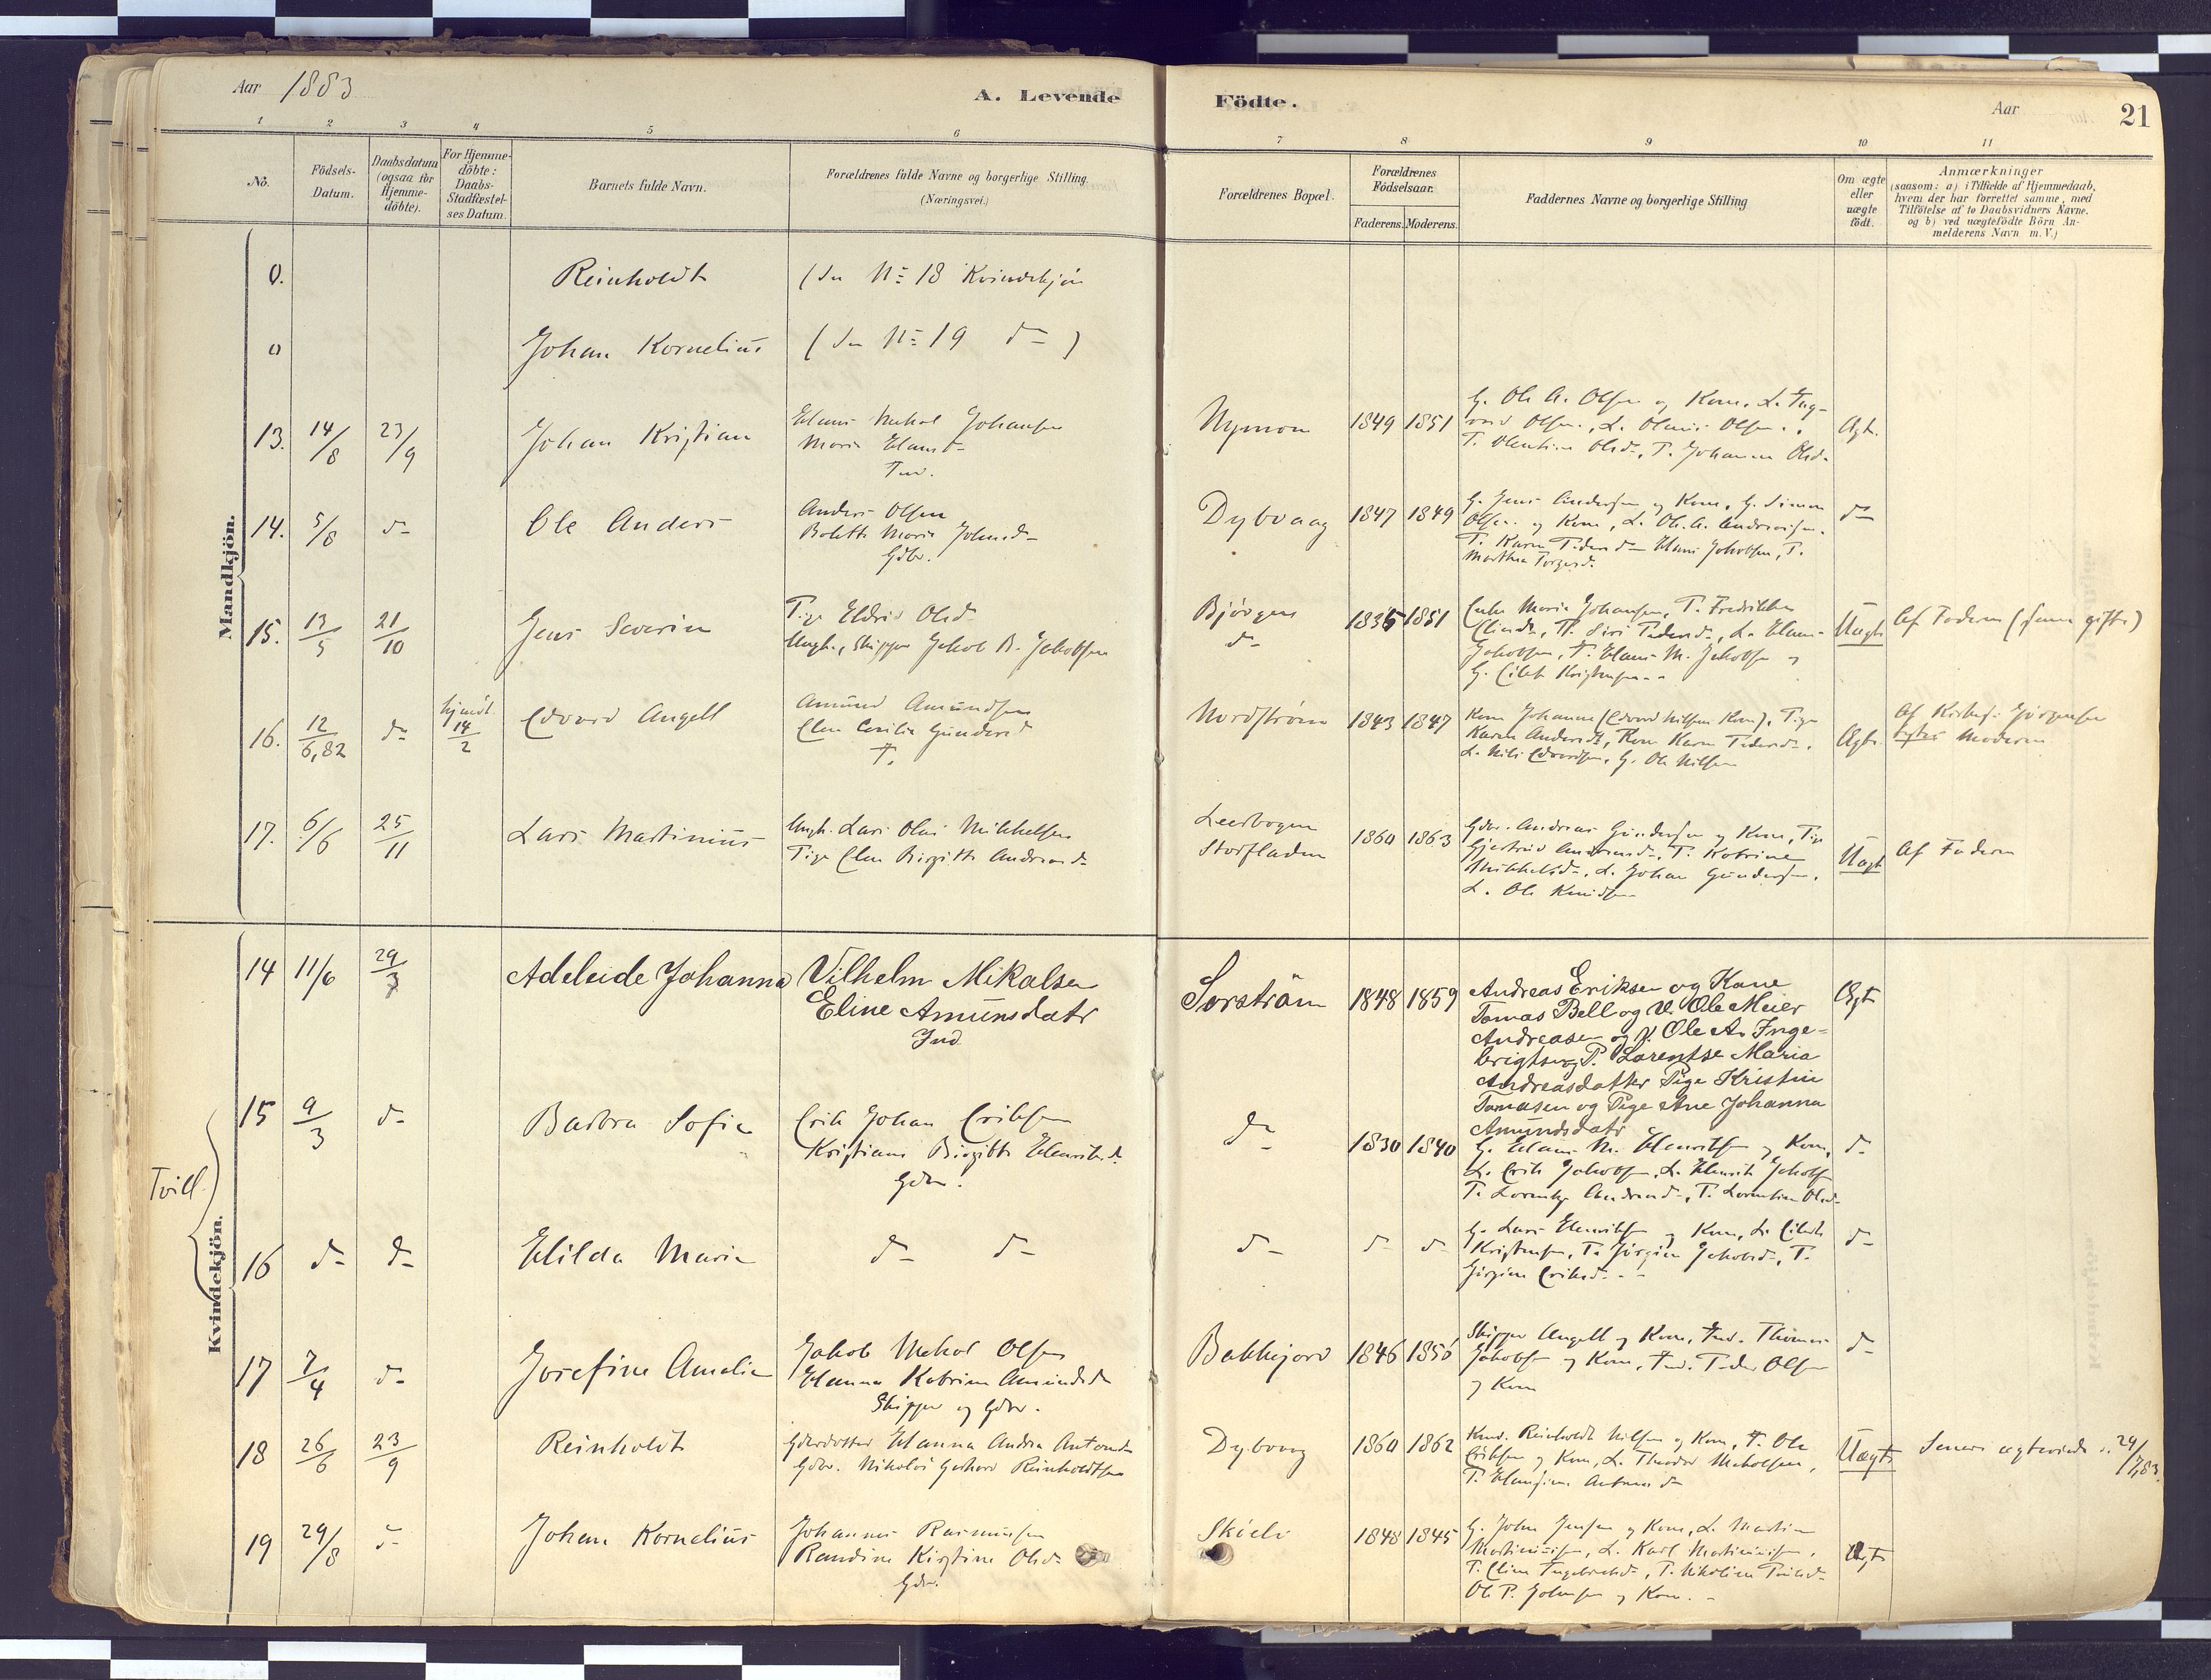 Aar 1883
A. Levende
Födte.
Aar
21
1 2 3 4 5 6 7 8 9 10 11
No.
Födsels-
Datum.
Daabsdatum
(ogsaa for
Hjemme-
döbte).
For Hjemme-
döbte:
Daabs-
Stadfæstel-
ses Datum.
Barnets fulde Navn.
Forældrenes fulde Navne og borgerlige Stilling
(Næringsvei.)
Forældrenes Bopæl.
Forældrenes
Födselsaar.
Faderens. Moderens.
Faddernes Navne og borgerlige Stilling
Om ægte
eller
uægte
födt.
Anmærkninger
(saasom: a) i Tilfælde af Hjemmedaab,
hvem der har forrettet samme, med
Tilföielse af to Daabsvidners Navne,
og b) ved uægtefödte Börn An-
melderens Navn m. V.)
Mandkjön.
0.
Reinholdt
(Se No 18 Kvindekjön
0
Johan Kornelius
(Se No 19 do)
13. 14/8 23/9
Johan Kristian
Hans Mikal Johansen
Maria Hansd.
Ind.
1849 1851
G. Ole A. Olsen og Kone, L. Ing-
vard Olsen, L. Olaus Olsen,
P. Olentine Olsd., P. Johanna Olsd.
Ægt.
14. 5/8 do
Ole Anders
Anders Olsen
Bolette Maria Johnsd.
Gdbr.
Dybvaag
1847 1849
G. Jens Andersen og Kone, G. Simon
Olsen og Kone, L. Ole A.
P. Karen Pedersd. Hans Jakobsen, P.
Marthea Torgersd.
do
15. 13/5 21/10
Jens Severin
Pige Eldrid Olsd.
Ungk., Skipper Jakob B. Jakobsen
Bjørgen
do
1835 1851
Enke Maria Johansen, P. Fredrikke
P. Siri Pedersd., L. Hans
Jakobsen, F. Hans M. Jakobsen og
G. Eilert Kristensen
Uægte
Af Faderen (senere gifte)
16. 12/6,82 do
hjmdt. 14/2
Edvard Angell
Amund Amundsen
Elen Cecilia Gundersd.
F.
Nordstrøm
1843 1847
Kone Johanna (Edvard Nilsen Kone), Pige
Karen Andersd., Kone Karen Pedersd.,
L. Nils Edvardsen, G. Ole Nilsen
Ægte
Af Kirkes. Jørgensen
Moderen
17. 6/6 25/11
Lars Martinius
Ungk. Lars Olai Mikkelsen
Pige Elen Birgitte Andreasd.
Leerbogen
Storfladen
1860 1863
Gdbr. Andreas Gundersen og Kone, Pige
Gjertrud P. Katrine
Mikkelsd., L. Johan Gundersen,
L. Ole Knudsen
Uægt
Af Faderen
Kvindekjön.
14 11/6 29/3
Adeleide Johanna
Vilhelm Mikalsen
Eline Amunsdatr
Ind
Sorström
1848 1859
Andreas Eriksen og Kane
Tomas Bell og U. Ole Meier
Andreasen og U. Ole A. Inge-
brigtsen og P. Larentse Maria
Andreasdatter Pige Kristin
Tomasen og Pige Ane Johanna
Amundsdatr
Ægt
Tvill.
15 9/3 do
Barbra Sofie
Erik Johan Eriksen
Kristiane Birgitte Henriksd.
Gdbr.
do
1830 1840
G. Hans M. Henriksen og Kone,
L. Erik Jakobsen, L. Henrik Jakobsen
P. Lorentse Andreasd., P. Lorentine Olsd.
do
16 do do
Hilda Maria
do do
do
do do
G. Lars Henriksen og Kone, L. Eilert
Kristensen, P. Jörgine Jakobsd., P.
Jörgine Eriksd.
do
17 7/4 do
Josefine Amalie
Jakob Mikal Olsen
Hanna Katrine Amundsd.
Skipper og Gdbr.
Bakkejord
1846 1850
Skipper Angell og Kone, Ind. Thomas
Jakobsen og Kone, Ind. Peder Olsen
og Kone
do
18 26/6 23/9
Reinholdt
Gdbrdatter Hanna Andrea Antonsd.
Gdbr. Nikolai Gerhard Reinholdtsen
Dybvaag
1860 1862
Kmd. Reinholdt Nilsen og Kone, F. Ole
Eriksen og Kone, L. Theodor Mikalsen,
P. Hansine Antonsd.
Uægte
Senere ægteviede 24/7,83.
19 29/8 do
Johan Kornelius
Johannes Rasmussen
Randine Kirstine Olsd.
Gdbr.
1848 1845
G. John Jensen og Kone, L. Martin
Martinussen, L. Karl Martinussen,
P. Eline Ingebrigtsd., P. Nikoline
Ole P. Johnsen og Kone.
Ægte